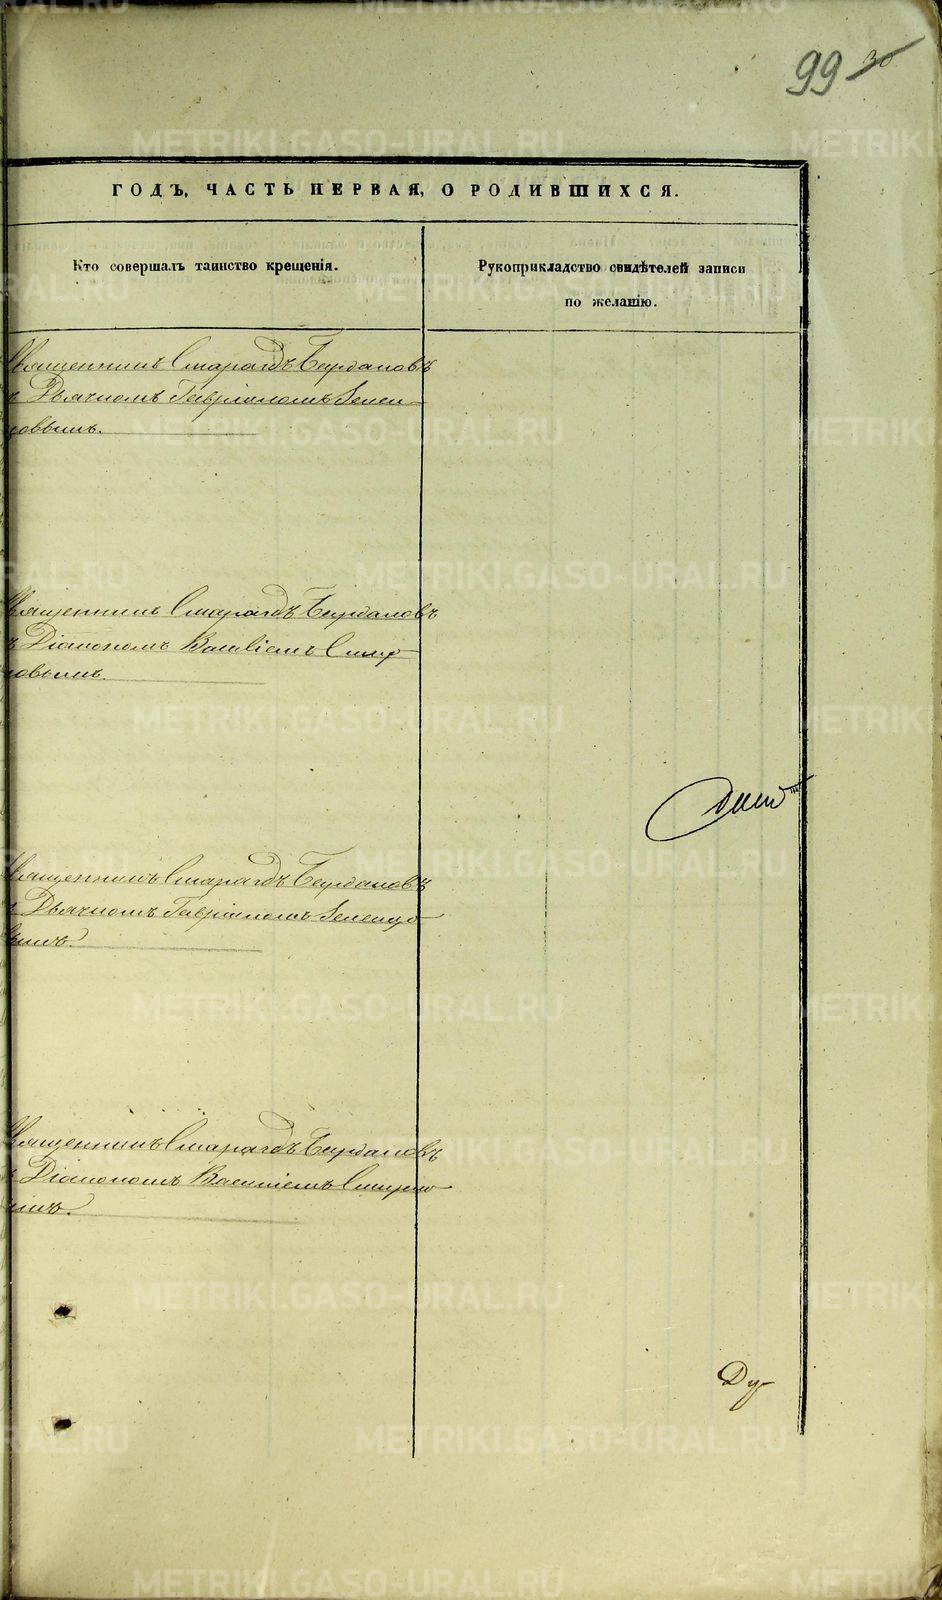 99 30
ГОДЪ, ЧАСТЬ ПЕРВАЯ, О РОДИВШИХСЯ.
Кто совершалъ таинство крещенія.
Рукоприкладство свидѣтелей записи
по желанію.
Священникъ Смарагдъ Бурдаковъ
съ Дьячкомъ Гавріиломъ Зелен
цовымъ.
Священникъ Смарагдъ Бурдаковъ
съ Діакономъ Василіемъ Смир
новымъ.
Священникъ Смарагдъ Бурдаковъ
съ Дьячкомъ Гавріиломъ Зеленцо
вымъ.
Священникъ Смарагдъ Бурдаковъ
съ Діакономъ Василіемъ Смирно
вымъ.
Ду
METRIKI.GASO-URAL.RU